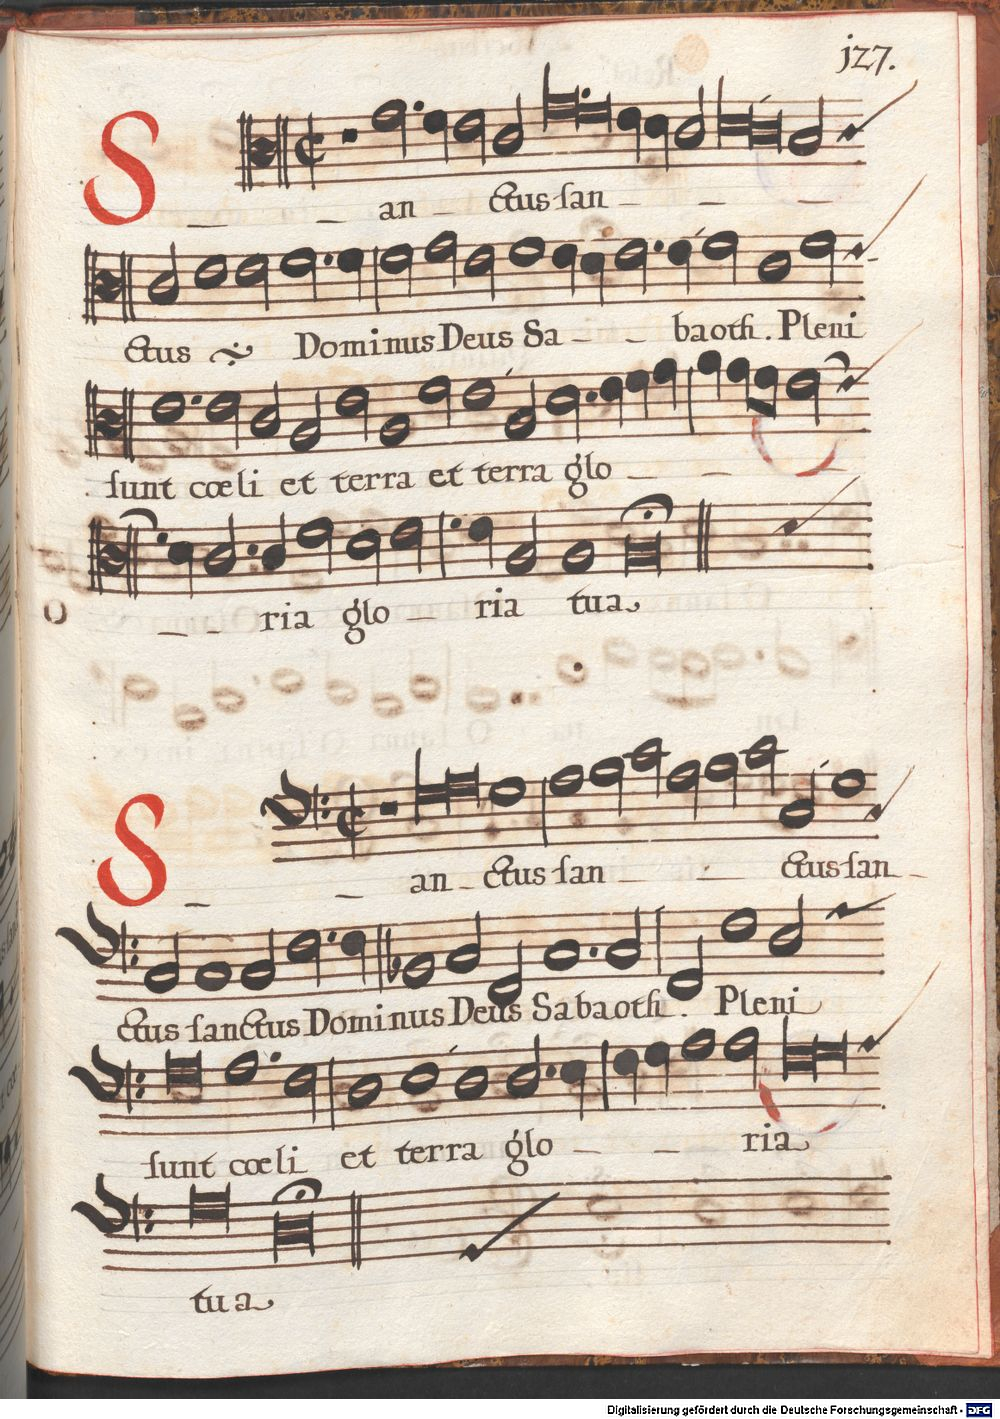 127.
S _ _ an _ ctus san _ _ _
ctus Dominus Deus Sa _ _ baoth. Pleni
sunt cœli et terra et terra glo _ _ _
_ _ ria glo _ ria tua
S _ _ an _ ctus san _ _ ctus san _
ctus sanctus Dominus Deus Sabaoth. Pleni
sunt cœli et terra glo _ _ ria
tua
Digitalisierung gefördert durch die Deutsche Forschungsgemeinschaft - DFG